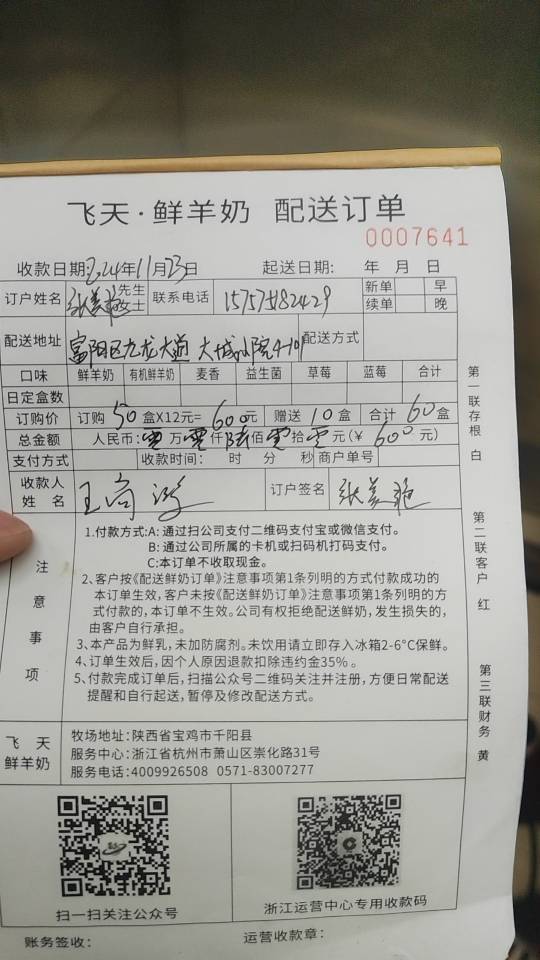 飞天·鲜羊奶 配送订单
0007641
收款日期 2024年11月23日 起送日期: 年 月 日
订户姓名 张美艳 先生 女士 联系电话 新单 早
续单 晚
配送地址 富阳区九龙大道 大城小院4-101 配送方式
口味 鲜羊奶 有机鲜羊奶 麦香 益生菌 草莓 蓝莓 合计
日定盒数
订购价 订购 50 盒X12元= 600元 赠送 10 盒 合计 60 盒
总金额 人民币: 零 万 零 仟 陆 佰 零 拾 零 元(¥ 600 元)
支付方式 收款时间: 时 分 秒 商户单号
收款人姓名 王 订户签名 张美艳
注意事项
1.付款方式:A: 通过扫公司支付二维码支付宝或微信支付。
B: 通过公司所属的卡机或扫码机打码支付。
C:本订单不收取现金。
2、客户按《配送鲜奶订单》注意事项第1条列明的方式付款成功的
本订单生效,客户未按《配送鲜奶订单》注意事项第1条列明的方
式付款的,本订单不生效。公司有权拒绝配送鲜奶,发生损失的,
由客户自行承担。
3、本产品为鲜乳,未加防腐剂。未饮用请立即存入冰箱2-6°C保鲜。
4、订单生效后,因个人原因退款扣除违约金35%。
5、付款完成订单后,扫描公众号二维码关注并注册,方便日常配送
提醒和自行起送,暂停及修改配送方式。
飞天
鲜羊奶
牧场地址:陕西省宝鸡市千阳县
服务中心:浙江省杭州市萧山区崇化路31号
服务电话:4009926508 0571-83007277
扫一扫关注公众号
浙江运营中心专用收款码
账务签收: 运营收款章:
第一联存根 白
第二联客户 红
第三联财务 黄